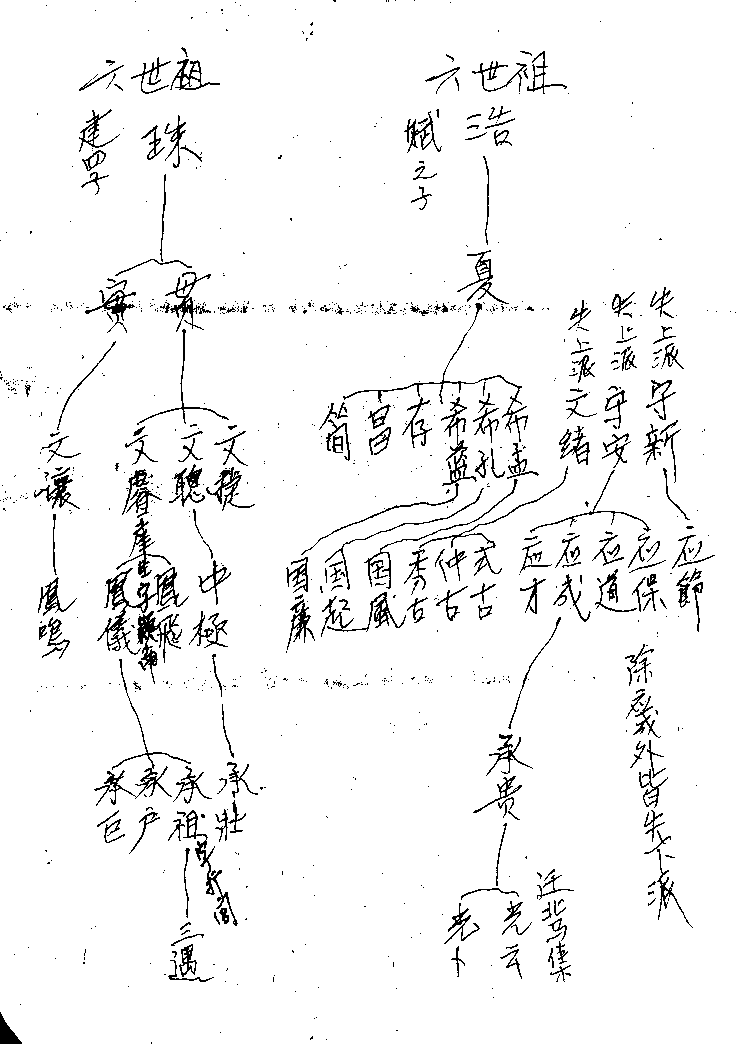 六世祖
浩
賦之子
夏
希孟
希孔
希藍
存
昌
簡
失上派守新
失上派守安
失上派文緒
应節
应保
应道
应成
应才
式古
仲古
秀古
国威
国起
国廉
除应成外皆失下派
承贵
光云
光卜
迁北马集
六世祖
珠
建四子
贯
實
文捷
文聰
文睿
文讓
中極
鳳飛
鳳儀
鳳鳴
承壯
承祖
承户
承巨
三遇